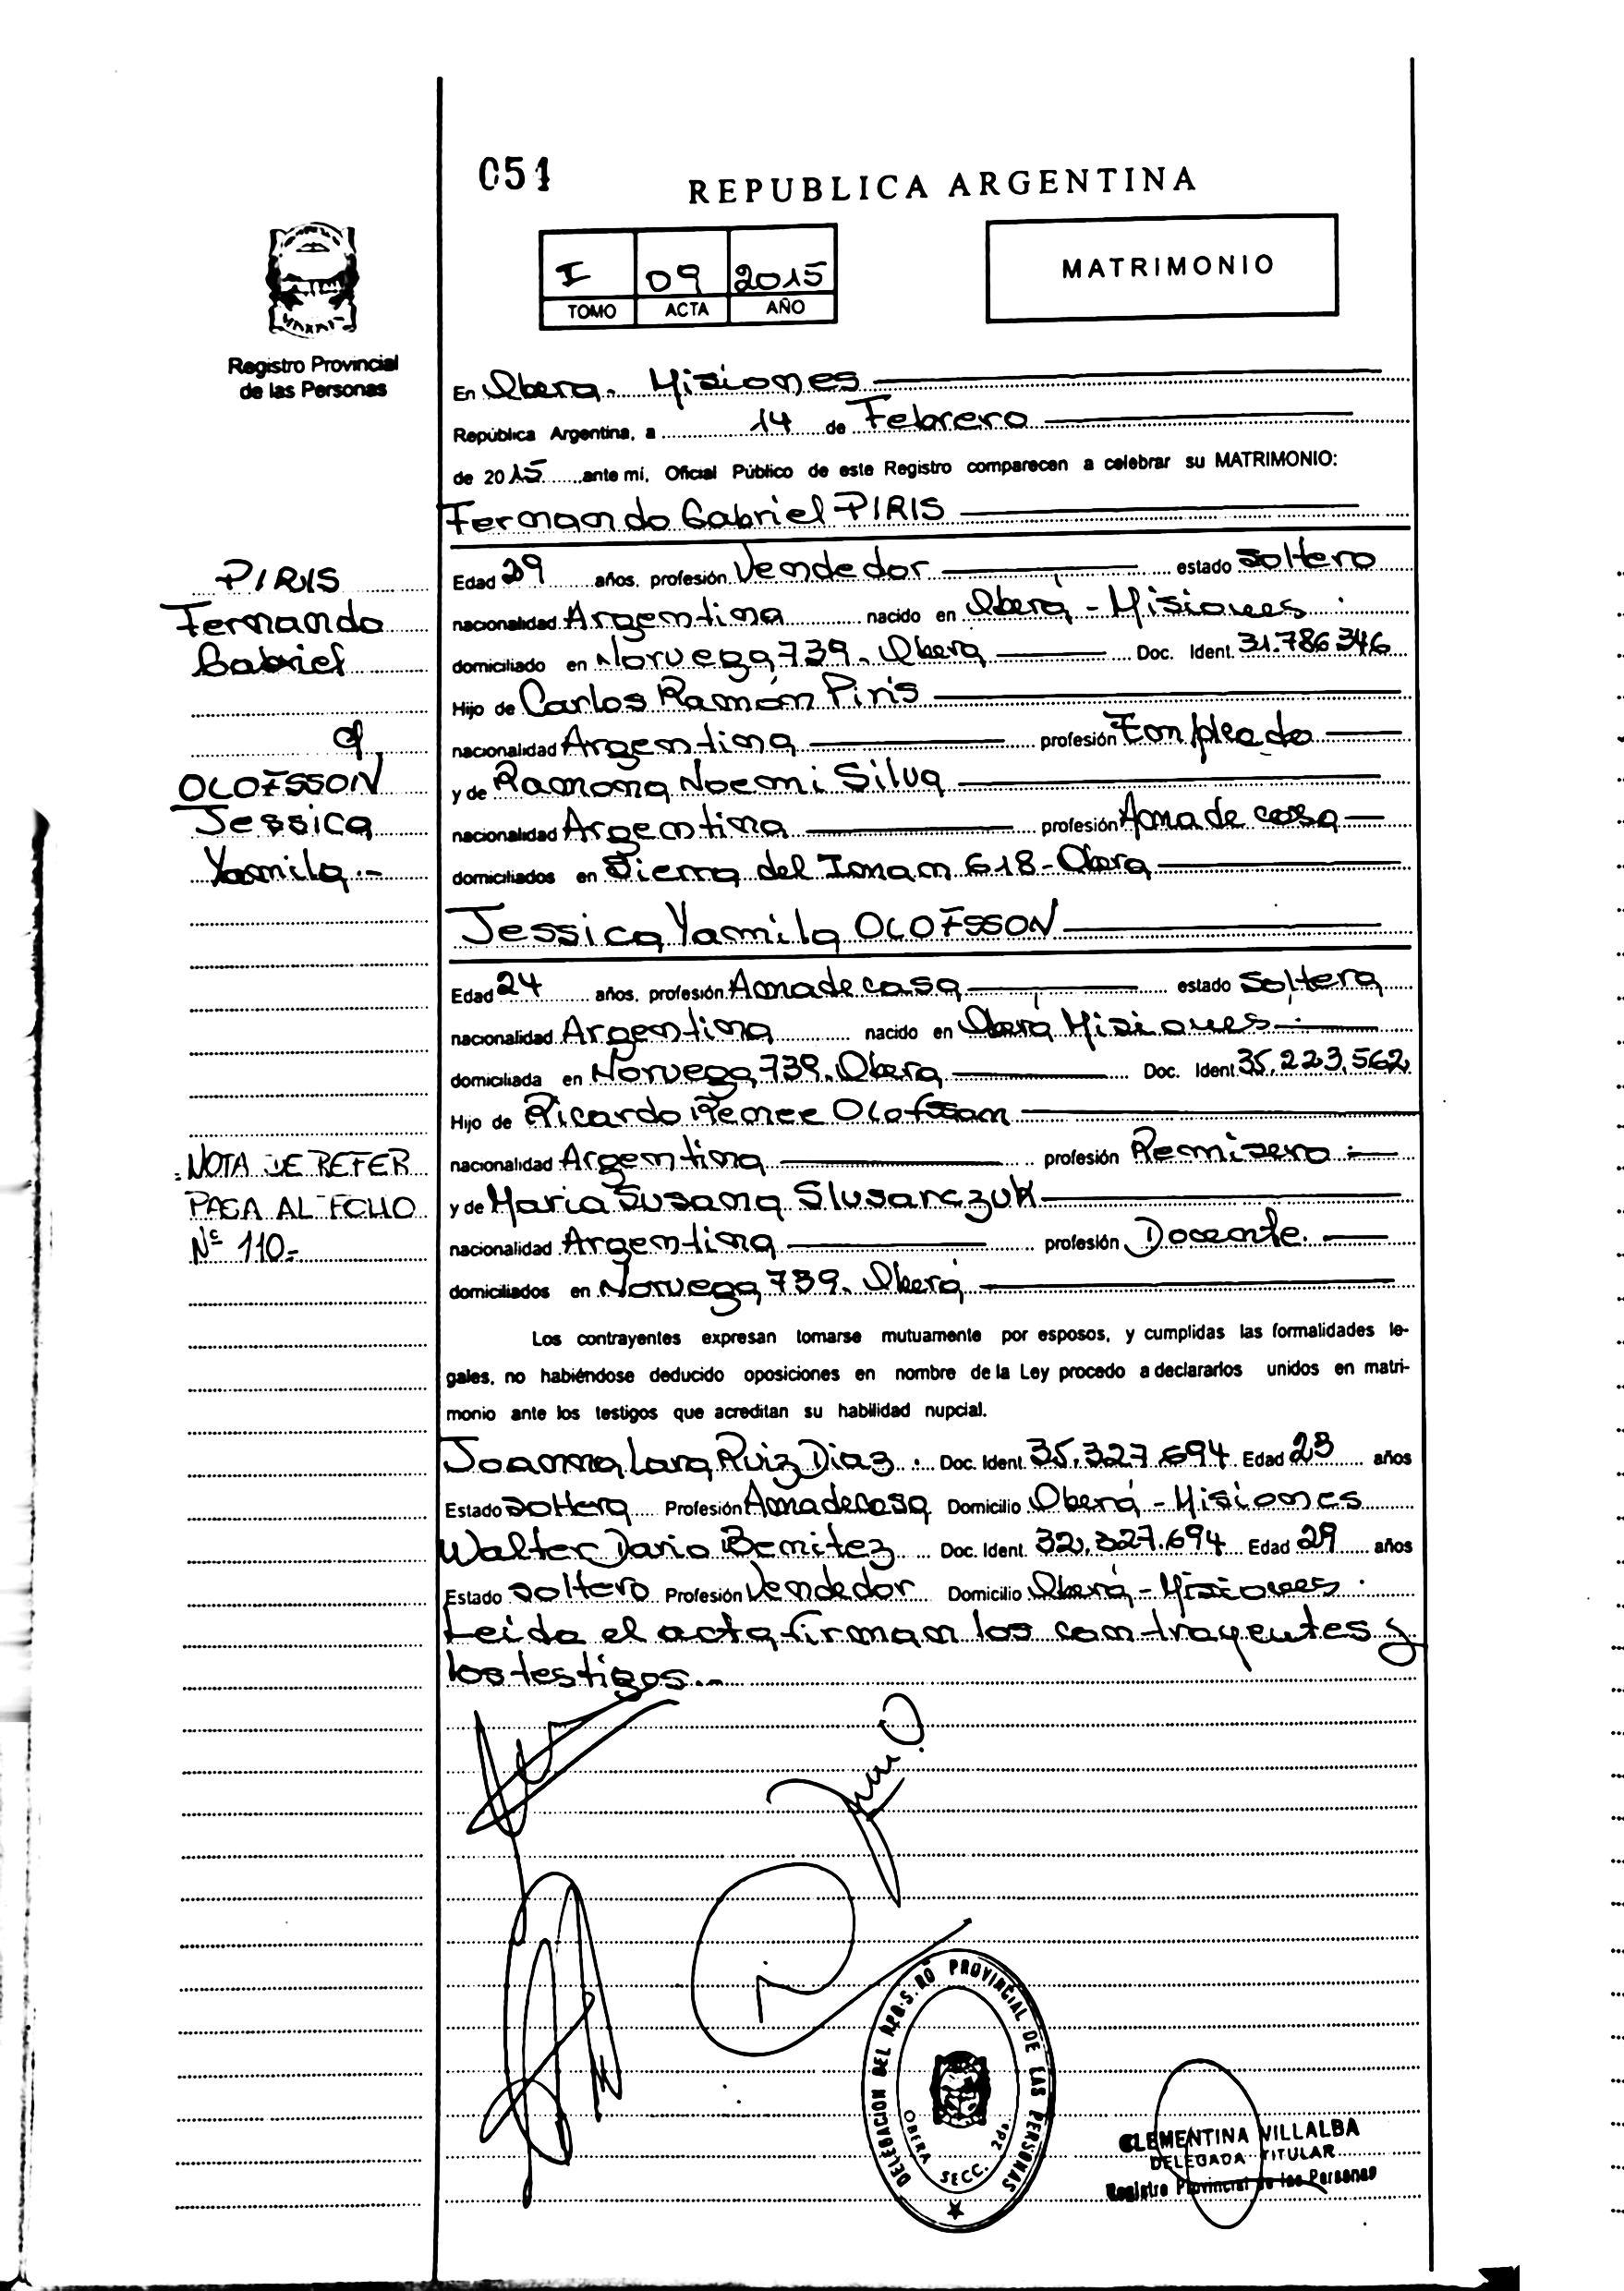 051
REPUBLICA ARGENTINA
I 09 2015
TOMO ACTA AÑO
MATRIMONIO
Registro Provincial
de las Personas
En Obera. Misiones
República Argentina, a 14 de Febrero
de 2015 ante mí, Oficial Público de este Registro comparecen a celebrar su MATRIMONIO:
Fernando Gabriel PIRIS
Edad 29 años, profesión Vendedor estado Soltero
nacionalidad Argentina nacido en Oberá - Misiones.
domiciliado en Noruega 739. Oberá Doc. Ident. 31.786.346
Hijo de Carlos Ramón Piris
nacionalidad Argentina profesión Empleado
y de Ramona Noemi Silva
nacionalidad Argentina profesión Ama de casa
domiciliados en Sierra del Iman 618 - Obera
Jessica Yamila OLOFSSON
Edad 24 años, profesión Ama de casa estado Soltera
nacionalidad Argentina nacido en Oberá Misiones
domiciliada en Noruega 739. Obera Doc. Ident. 35.223.562
Hijo de Ricardo Renee Olofsson
nacionalidad Argentina profesión Remisero
y de Maria Susana Slusarczuk
nacionalidad Argentina profesión Docente.
domiciliados en Noruega 739. Oberá
Los contrayentes expresan tomarse mutuamente por esposos, y cumplidas las formalidades le-
gales, no habiéndose deducido oposiciones en nombre de la Ley procedo a declararlos unidos en matri-
monio ante los testigos que acreditan su habilidad nupcial.
Joanna Lara Ruiz Diaz. Doc. Ident. 35.327.694 Edad 23 años
Estado Soltera Profesión Ama de casa Domicilio Oberá - Misiones
Walter Dario Benitez Doc. Ident. 32.327.694 Edad 29 años
Estado Soltero Profesión Vendedor Domicilio Oberá - Misiones.
Leida el acta firman los contrayentes y
los testigos.-
PIRIS
Fernando
Gabriel
c/
OLOFSSON
Jessica
Yamila.-
NOTA DE REFER
PASA AL FOLIO
Nº 110.-
DELEGACION DEL REGISTRO PROVINCIAL DE LAS PERSONAS
OBERA SECC. 2da.
CLEMENTINA VILLALBA
DELEGADA TITULAR
Registro Provincial de las Personas